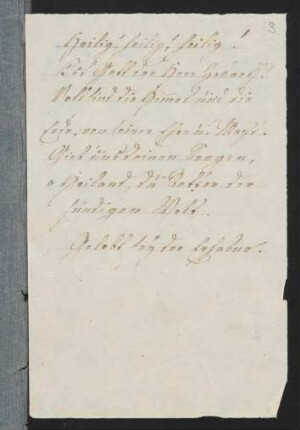 3
Heilig! heilig! heilig!
Ist Gott der Herr Zebaoth!
Voll sind die Himmel und die
Erde, von seiner Ehr u. Macht.
Gieb uns deinen Seegen,
o Heiland, du Retter der
sündigen Welt.
Gelobt sey der Erhabne.